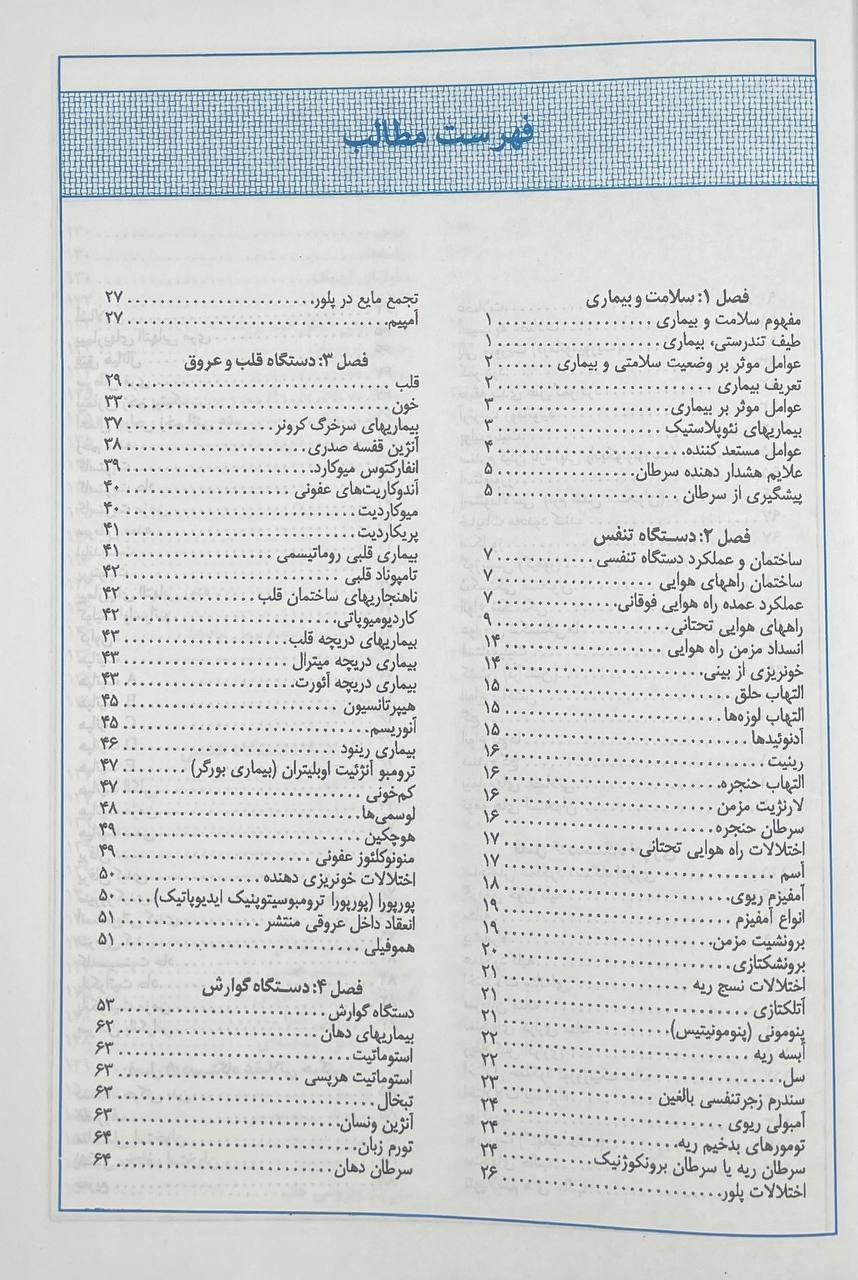 فهرست مطالب
فصل ۱: سلامت و بیماری
مفهوم سلامت و بیماری ................... ۱
طیف تندرستی، بیماری ................... ۱
عوامل موثر بر وضعیت سلامتی و بیماری ....... ۲
تعریف بیماری ................... ۲
عوامل موثر بر بیماری ................... ۳
بیماریهای نئوپلاستیک ................... ۳
عوامل مستعد کننده ................... ۴
علایم هشدار دهنده سرطان ................... ۵
پیشگیری از سرطان ................... ۵
فصل ۲: دستگاه تنفس
ساختمان و عملکرد دستگاه تنفسی ............ ۷
ساختمان راههای هوایی ................... ۷
عملکرد عمده راه هوایی فوقانی ............ ۷
راههای هوایی تحتانی ................... ۹
انسداد مزمن راه هوایی ................... ۱۴
خونریزی از بینی ................... ۱۴
التهاب حلق ................... ۱۵
التهاب لوزه‌ها ................... ۱۵
آدنوئیدها ................... ۱۵
رینیت ................... ۱۶
التهاب حنجره ................... ۱۶
لارنژیت مزمن ................... ۱۶
سرطان حنجره ................... ۱۶
اختلالات راه هوایی تحتانی ................... ۱۷
آسم ................... ۱۷
آمفیزم ریوی ................... ۱۸
انواع آمفیزم ................... ۱۹
برونشیت مزمن ................... ۱۹
برونشکتازی ................... ۲۰
اختلالات نسج ریه ................... ۲۱
آتلکتازی ................... ۲۱
پنومونی (پنومونیتیس) ................... ۲۱
آبسه ریه ................... ۲۲
سل ................... ۲۲
سندرم زجرتنفسی بالغین ................... ۲۳
آمبولی ریوی ................... ۲۴
تومورهای بدخیم ریه ................... ۲۴
سرطان ریه یا سرطان برونکوژنیک ............ ۲۴
اختلالات پلور ................... ۲۶
تجمع مایع در پلور ................... ۲۷
آمپیم ................... ۲۷
فصل ۳: دستگاه قلب و عروق
قلب ................... ۲۹
خون ................... ۳۳
بیماریهای سرخرگ کرونر ................... ۳۷
آنژین قفسه صدری ................... ۳۸
انفارکتوس میوکارد ................... ۳۹
آندوکاریت‌های عفونی ................... ۴۰
میوکاردیت ................... ۴۰
پریکاردیت ................... ۴۱
بیماری قلبی روماتیسمی ................... ۴۱
تامپوناد قلبی ................... ۴۲
ناهنجاریهای ساختمان قلب ................... ۴۲
کاردیومیوپاتی ................... ۴۲
بیماریهای دریچه قلب ................... ۴۳
بیماری دریچه میترال ................... ۴۳
بیماری دریچه آئورت ................... ۴۳
هیپرتانسیون ................... ۴۵
آنوریسم ................... ۴۵
بیماری رینود ................... ۴۶
ترومبو آنژئیت اوبلیتران (بیماری بورگر) ........ ۴۷
کم‌خونی ................... ۴۷
لوسمی‌ها ................... ۴۸
هوچکین ................... ۴۹
منونوکلئوز عفونی ................... ۴۹
اختلالات خونریزی دهنده ................... ۵۰
پورپورا (پورپورا ترومبوسیتوپنیک ایدیوپاتیک) .... ۵۰
انعقاد داخل عروقی منتشر ................... ۵۱
هموفیلی ................... ۵۱
فصل ۴: دستگاه گوارش
دستگاه گوارش ................... ۵۳
بیماریهای دهان ................... ۶۲
استوماتیت ................... ۶۳
استوماتیت هرپسی ................... ۶۳
تبخال ................... ۶۳
آنژین ونسان ................... ۶۳
تورم زبان ................... ۶۴
سرطان دهان ................... ۶۴